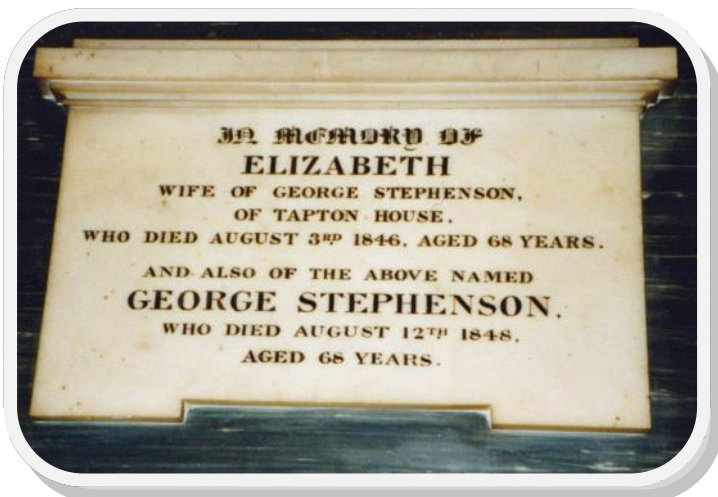 IN MEMORY OF
ELIZABETH
WIFE OF GEORGE STEPHENSON,
OF TAPTON HOUSE.
WHO DIED AUGUST 3RD 1846. AGED 68 YEARS.
AND ALSO OF THE ABOVE NAMED
GEORGE STEPHENSON.
WHO DIED AUGUST 12TH 1848.
AGED 68 YEARS.